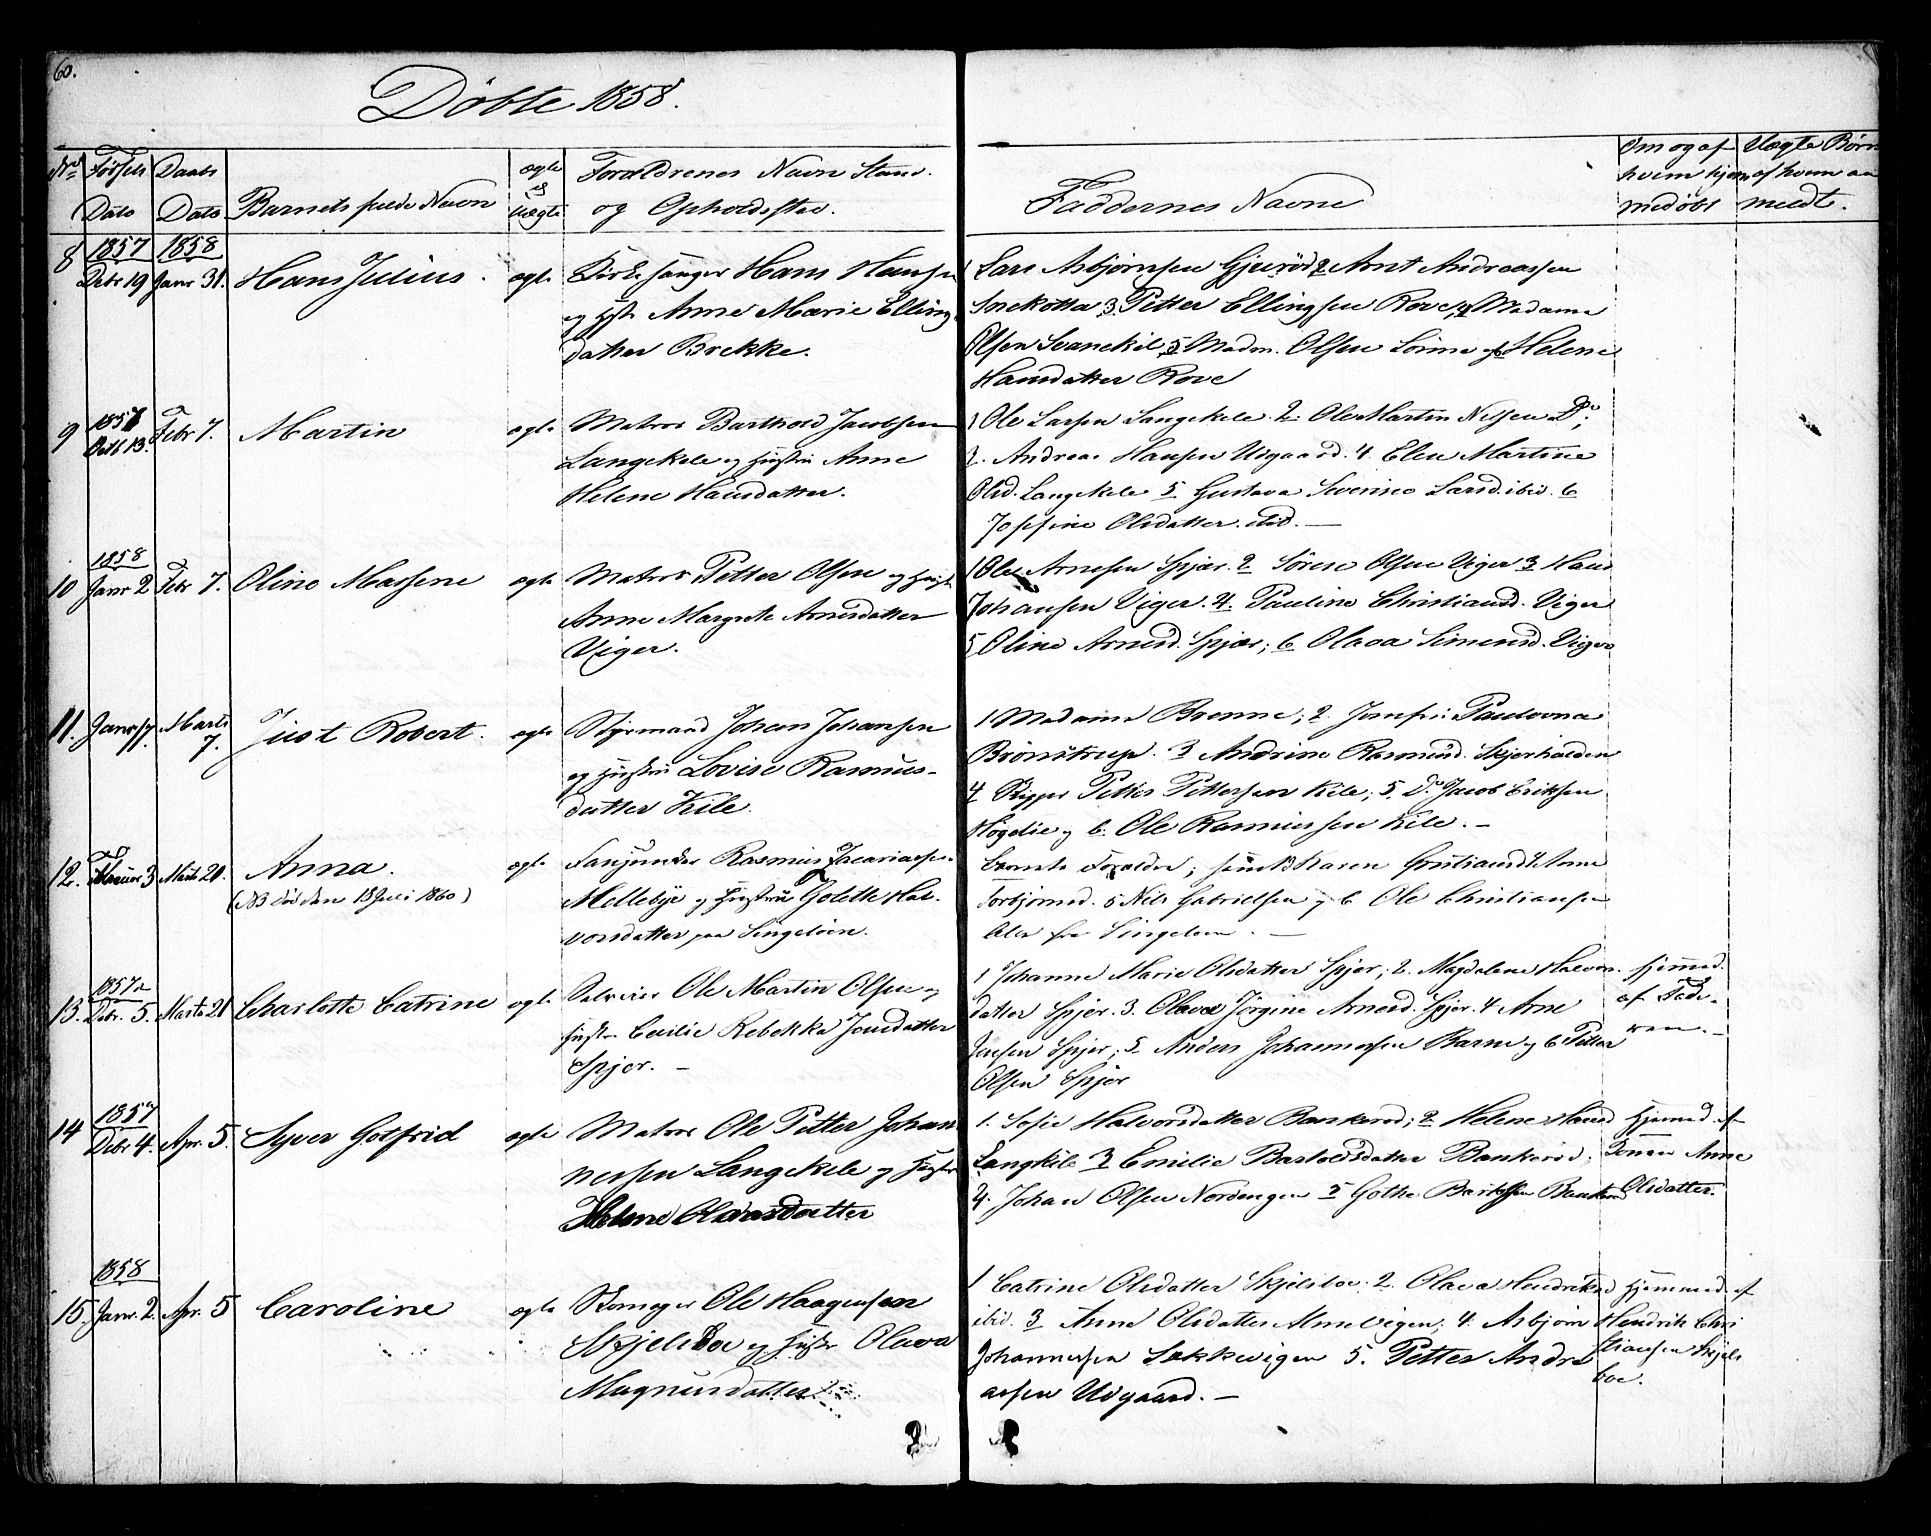 60.
Döbte 1858.
No Födsels Dato
Daabs Dato
Barnets fulde Navn
ægte el uægte
Forældrenes Navn Stand
og Opholdssted.
Faddernes Navne
Om og af hvem hjemmedöbt
Uægte Börn af hvem anmeldt.
8 1857 Debr 19 1858 Janr 31. Hans Julius. ægte
Kirkesanger Hans Hansen
og Hst. Anne Marie Ellings
datter Brekke.
1 Lars Asbjörnsen Gjeröd 2 Arnt Andreassen
Snekotta 3 Petter Ellingsen Rove, 4 Madame
Olsen Svanekil 5 Madm. Olsen Lönne og 6 Helene
Hansdatter Rove
9 1857 Octb 13. Febr 7. Martin ægte
Matros Barthold Jacobsen
Langekile og Hustru Anne
Helene Hansdatter.
1 Ole Larsen Langekile. 2. Ole Martin Nilsen Do;
3. Andreas Hansen Utgaard. 4 Elen Martine
Olsd. Langekile 5 Gustava Severine Larsd. ibid. 6
Josefine Olsdatter. ibid. —
10 1858 Janr 2 Febr 7. Oline Massene ægte
Matros Petter Olsen og Hust
Anne Margrete Arnesdatter
Viger.
1 Ole Arnesen Spjær. 2 Sörene Olsen Viger 3 Hans
Johansen Viger. 4. Pauline Christiansd. Viger
5 Oline Arnesd. Spjær; 6 Olava Simensd. Viger
11. Janr 17. Marts 7. Just Robert. ægte
Styrmand Johan Johansen
og Hustru Lovise Rasmus-
datter Kile.
1 Madame Brenne; 2. Jomfru Paulovna
Brönstrup. 3 Andrine Rasmusd. Skjerhalden
4 Skipper Petter Pettersen Kile; 5. Do Jacob Eriksen
Högelie og 6. Ole Rasmussen Kile. —
12. Februar 3 Marts 20. Anna.
(NB död den 13 Juli 1860)
ægte
Rasmus Zacariassen
Mellebye og Hustru Golette Hal-
vorsdatter paa Singelöen.
Barnets Forældre; samt 3 Karen Cristiansd. 4. Anne
Torbjörnsd. 5 Nils Gabrielsen og 6 Ole Christiansen
Alle fra Singelöen. —
13. 1857 Debr. 5. Marts 21 Charlotte Catrine ægte
Selveier Ole Martin Olsen og
Hustru Cecilie Rebekka Jensdatter
Spjær. —
1 Johanne Marie Olsdatter Spjær; 2. Magdalene Halvors
datter Spjær. 3. Olava Jörgine Arnesd. Spjær. 4 Arne
Jensen Spjær; 5 Anders Johannessen Barm og 6 Petter
Olsen Spjær
hjemmed.
af Fade-
ren. —
14 1857 Debr 4. Apr. 5. Syver Gotfrid ægte
Matros Ole Petter Johan
nessen Langekile og Hustr
Helene Olausdatter
1. Sofie Halvorsdatter Bankeröd; 2 Helene Hansd
Langkile 3 Emilie Bartoldsdatter Bankeröd;
4. Johan Olsen Nordengen 5 Gothe Bartholsen Bankeröd
Hjemmed. af
Konen Anne
Olsdatter.
15. 1858 Janr. 2. Apr. 5 Caroline ægte
Ole Haagensen
Skjelsboe og Hustr Olava
Magnusdatter
1 Catrine Olsdatter Skjelsboe. 2. Olava Hendriksd
ibid. 3 Anne Olsdatter Ammevigen; 4. Asbjörn
Johannessen Lökkevigen 5. Petter Andre
assen Utgaard. —
Hjemmed. af
Hendrik Chri
stiansen Skjels
boe.